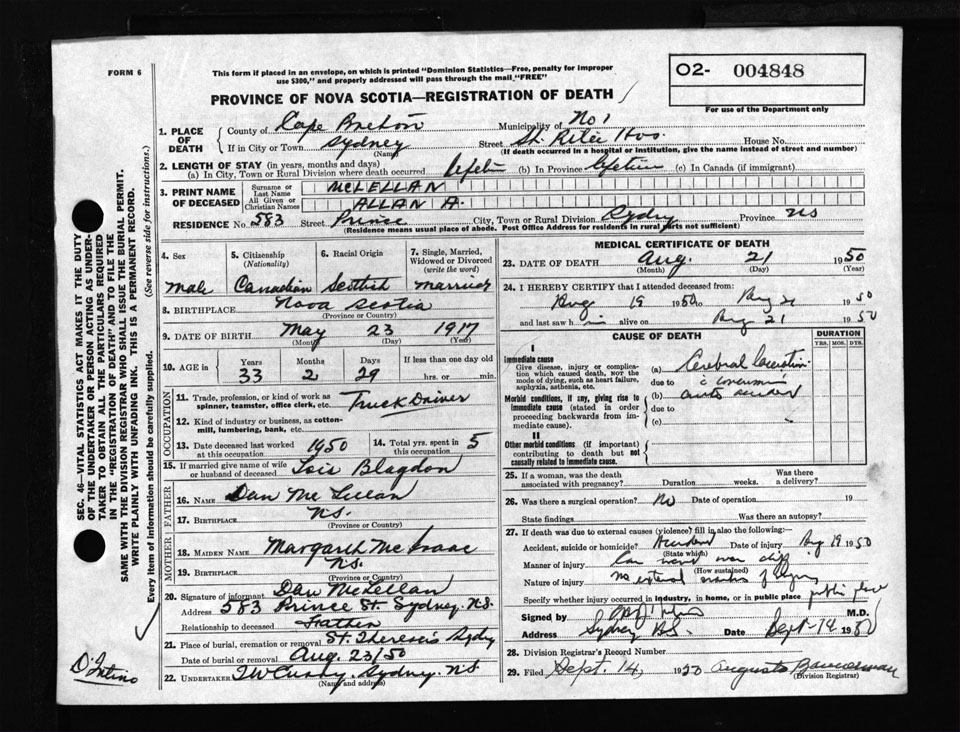 FORM 6
This form if placed in an envelope, on which is printed "Dominion Statistics—Free, penalty for improper
use $300," and properly addressed will pass through the mail "FREE"
O2- 004848
For use of the Department only
PROVINCE OF NOVA SCOTIA—REGISTRATION OF DEATH
1. PLACE OF DEATH
County of Cape Breton Municipality of No 1
If in City or Town Sydney Street St. Rita Hos. House No.
(Name) (If death occurred in a hospital or institution, give the name instead of street and number)
2. LENGTH OF STAY (in years, months and days)
(a) In City, Town or Rural Division where death occurred lifetime (b) In Province lifetime (c) In Canada (if immigrant)
3. PRINT NAME OF DECEASED
Surname or Last Name MCLELLAN
All Given or Christian Names ALLAN A.
RESIDENCE No. 583 Street Prince City, Town or Rural Division Sydney Province NS
(Residence means usual place of abode. Post Office Address for residents in rural parts not sufficient)
4. Sex male
5. Citizenship (Nationality) Canadian
6. Racial Origin Scottish
7. Single, Married, Widowed or Divorced (write the word) married
8. BIRTHPLACE Nova Scotia
(Province or Country)
9. DATE OF BIRTH May 23 1917
(Month) (Day) (Year)
10. AGE in Years 33 Months 2 Days 29 If less than one day old hrs. or min.
OCCUPATION
11. Trade, profession, or kind of work as spinner, teamster, office clerk, etc. Truck Driver
12. Kind of industry or business, as cotton-mill, lumbering, bank, etc.
13. Date deceased last worked at this occupation 1950 14. Total yrs. spent in this occupation 5
15. If married give name of wife or husband of deceased Lois Blagdon
FATHER
16. NAME Dan McLellan
17. BIRTHPLACE N.S.
(Province or Country)
MOTHER
18. MAIDEN NAME Margaret McIsaac
19. BIRTHPLACE N.S.
(Province or Country)
20. Signature of informant Dan McLellan
Address 583 Prince St. Sydney. N.S.
Relationship to deceased Father
21. Place of burial, cremation or removal St. Theresa's Sydney
Date of burial or removal Aug. 23/50
22. UNDERTAKER T W Curry, Sydney. N.S.
(Name and address)
MEDICAL CERTIFICATE OF DEATH
23. DATE OF DEATH Aug. 21 1950
(Month) (Day) (Year)
24. I HEREBY CERTIFY that I attended deceased from:
Aug 19 1950 to Aug 21 1950
and last saw him alive on Aug 21 1950
CAUSE OF DEATH
DURATION
YRS. MOS. DYS.
I
Immediate cause
Give disease, injury or complication which caused death, NOT the mode of dying, such as heart failure, asphyxia, asthenia, etc.
(a) Cerebral
due to
Morbid conditions, if any, giving rise to immediate cause (stated in order proceeding backwards from immediate cause).
(b) auto accident
due to
(c)
II
Other morbid conditions (if important) contributing to death but not causally related to immediate cause.
25. If a woman, was the death associated with pregnancy? Duration weeks. Was there a delivery?
26. Was there a surgical operation? No Date of operation 19
State findings Was there an autopsy?
27. If death was due to external causes (violence) fill in also the following:
Accident, suicide or homicide? Accident Date of injury Aug 19 1950
(State which)
Manner of injury Car went over cliff
(How sustained)
Nature of injury No external marks of injury
Specify whether injury occurred in industry, in home, or in public place public place
Signed by M.D.
Address Sydney N.S. Date Sept-14 1950
28. Division Registrar's Record Number
29. Filed Sept. 14, 1950 Bannerman
(Division Registrar)
SEC. 46—VITAL STATISTICS ACT MAKES IT THE DUTY
OF THE UNDERTAKER OR PERSON ACTING AS UNDER-
TAKER TO OBTAIN ALL THE PARTICULARS REQUIRED
IN THE "REGISTRATION OF DEATH" AND TO FILE THE
SAME WITH THE DIVISION REGISTRAR WHO SHALL ISSUE THE BURIAL PERMIT.
WRITE PLAINLY WITH UNFADING INK. THIS IS A PERMANENT RECORD.
Every item of information should be carefully supplied. (See reverse side for instructions.)
D'Intino